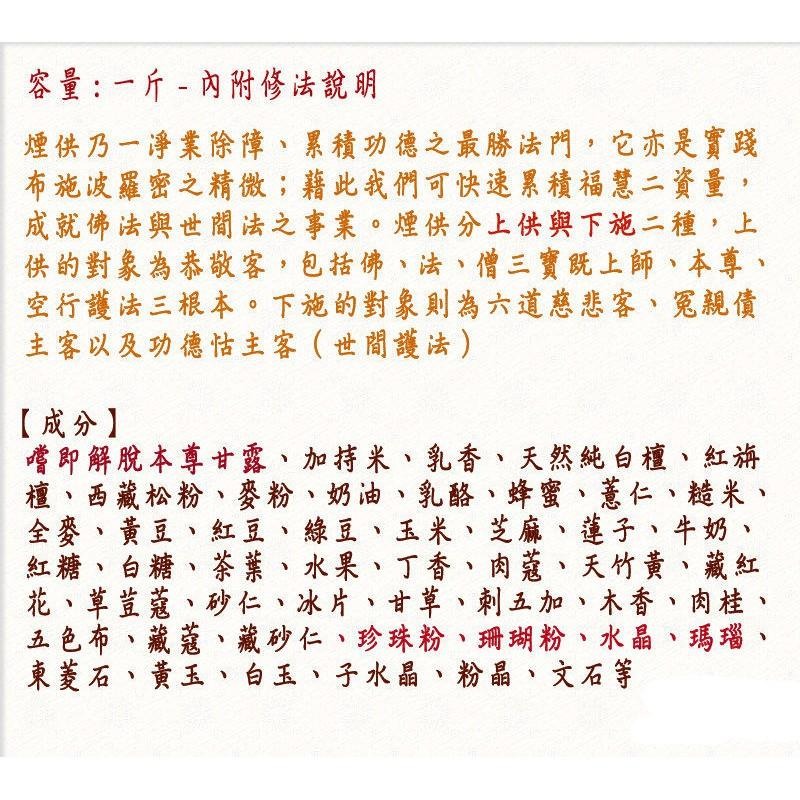 容量:一斤-內附修法說明
煙供乃一淨業除障、累積功德之最勝法門，它亦是實踐
布施波羅密之精微；藉此我們可快速累積福慧二資量，
成就佛法與世間法之事業。煙供分上供與下施二種，上
供的對象為恭敬客，包括佛、法、僧三寶既上師、本尊、
空行護法三根本。下施的對象則為六道慈悲客、冤親債
主客以及功德怙主客（世間護法）
【成分】
嚐即解脫本尊甘露、加持米、乳香、天然純白檀、紅旃
檀、西藏松粉、麥粉、奶油、乳酪、蜂蜜、薏仁、糙米、
全麥、黃豆、紅豆、綠豆、玉米、芝麻、蓮子、牛奶、
紅糖、白糖、茶葉、水果、丁香、肉蔻、天竹黃、藏紅
花、草荳蔻、砂仁、冰片、甘草、刺五加、木香、肉桂、
五色布、藏蔻、藏砂仁、珍珠粉、珊瑚粉、水晶、瑪瑙、
東菱石、黃玉、白玉、子水晶、粉晶、文石等